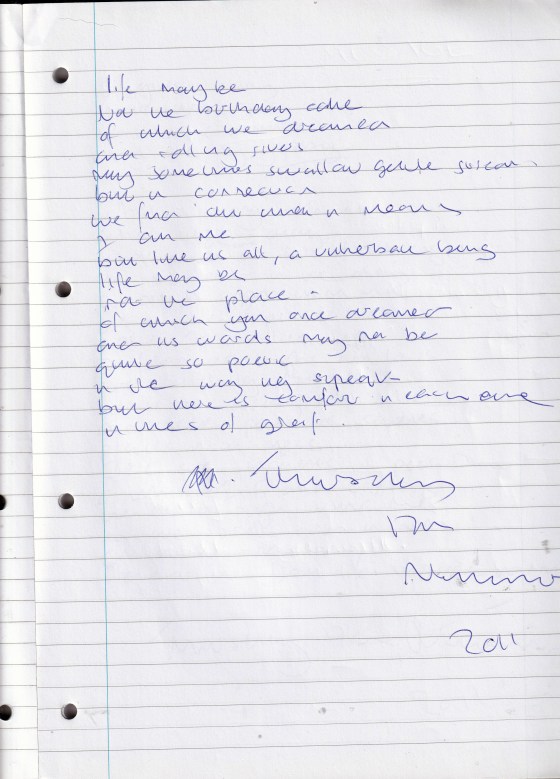 life may be
not the birthday cake
of which we dreamed
and rolling rivers
may sometimes swallow gentle
but in connection
we find out what it means
I am me
but like us all, a vulnerable being
life may be
not the place
of which you once dreamed
and its words may not be
quite so poetic
in the way they speak
but there is comfort in each one
in times of grief.
Thursday
November
2011